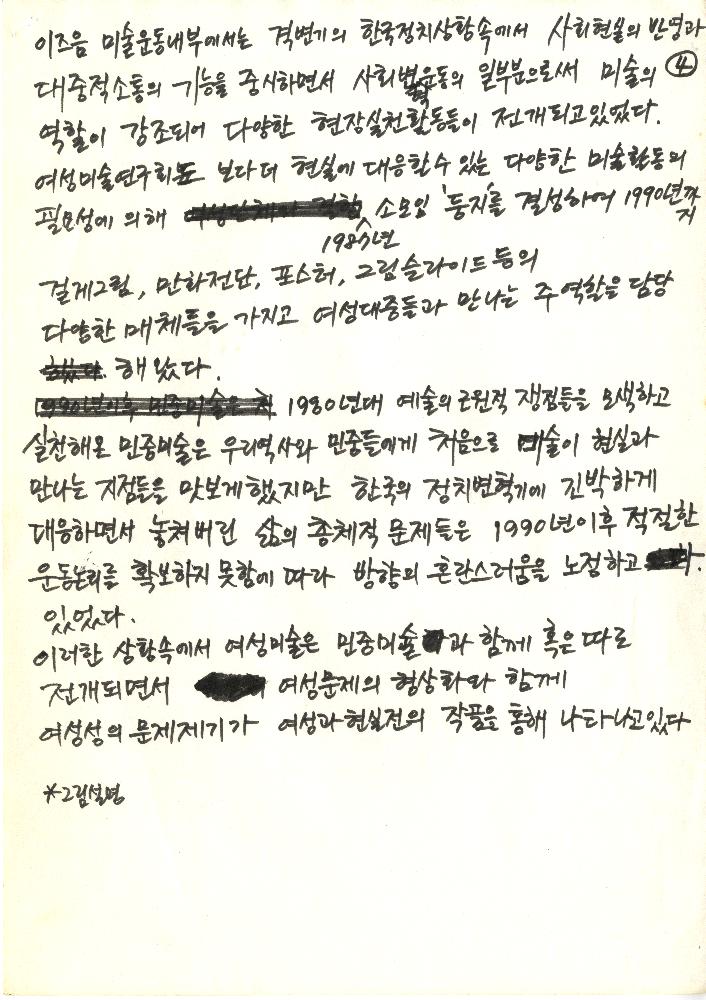 이즈음 미술운동내부에서는 격변기의 한국정치상황속에서 사회현실의 반영과
대중적소통의 기능을 중시하면서 사회변혁운동의 일부분으로써 미술의 ④
역할이 강조되어 다양한 현장실천활동들이 전개되고있었다.
여성미술연구회도 보다더 현실에 대응할수 있는 다양한 미술활동의
필요성에 의해 1987년 소모임 '둥지'를 결성하여 1990년까지
걸게그림, 만화전단, 포스터, 그림슬라이드등의
다양한 매체들을 가지고 여성대중들과 만나는 주역할을 담당
해왔다.
1980년대 예술의 근원적 쟁점들을 모색하고
실천해온 민중미술은 우리역사와 민중들에게 처음으로 미술이 현실과
만나는 지점들을 맛보게했지만 한국의 정치변혁기에 긴박하게
대응하면서 놓쳐버린 삶의 총체적 문제들은 1990년이후 적절한
운동논리를 확보하지 못함에 따라 방향의 혼란스러움을 노정하고
있었다.
이러한 상황속에서 여성미술은 민중미술과 함께 혹은 따로
전개되면서 여성문제의 형상화와 함께
여성성의 문제제기가 여성과현실전의 작품을 통해 나타나고있다
*그림설명